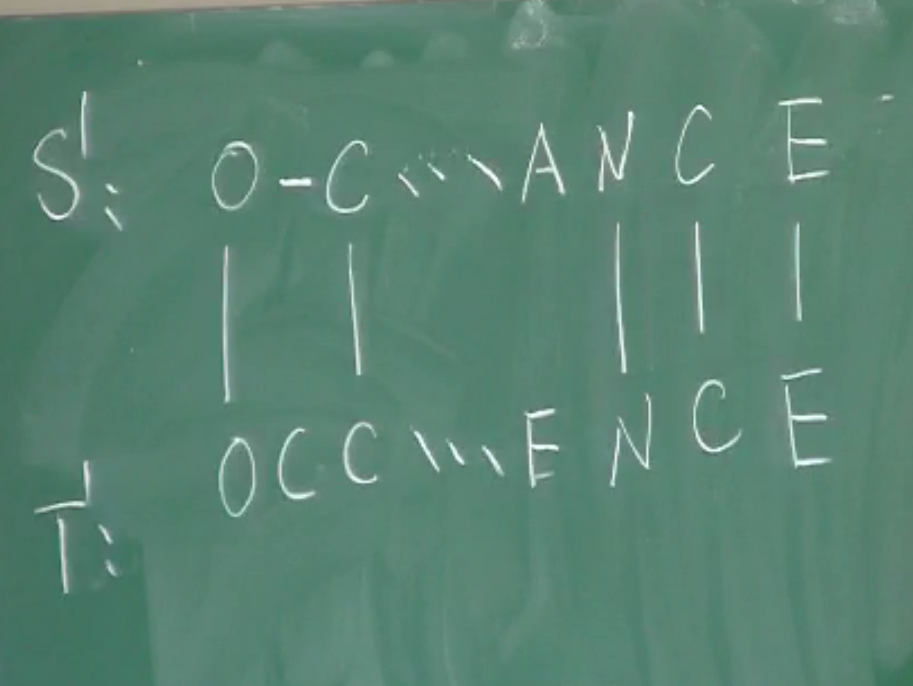 S': O-C...ANCE
T': OCC...ENCE